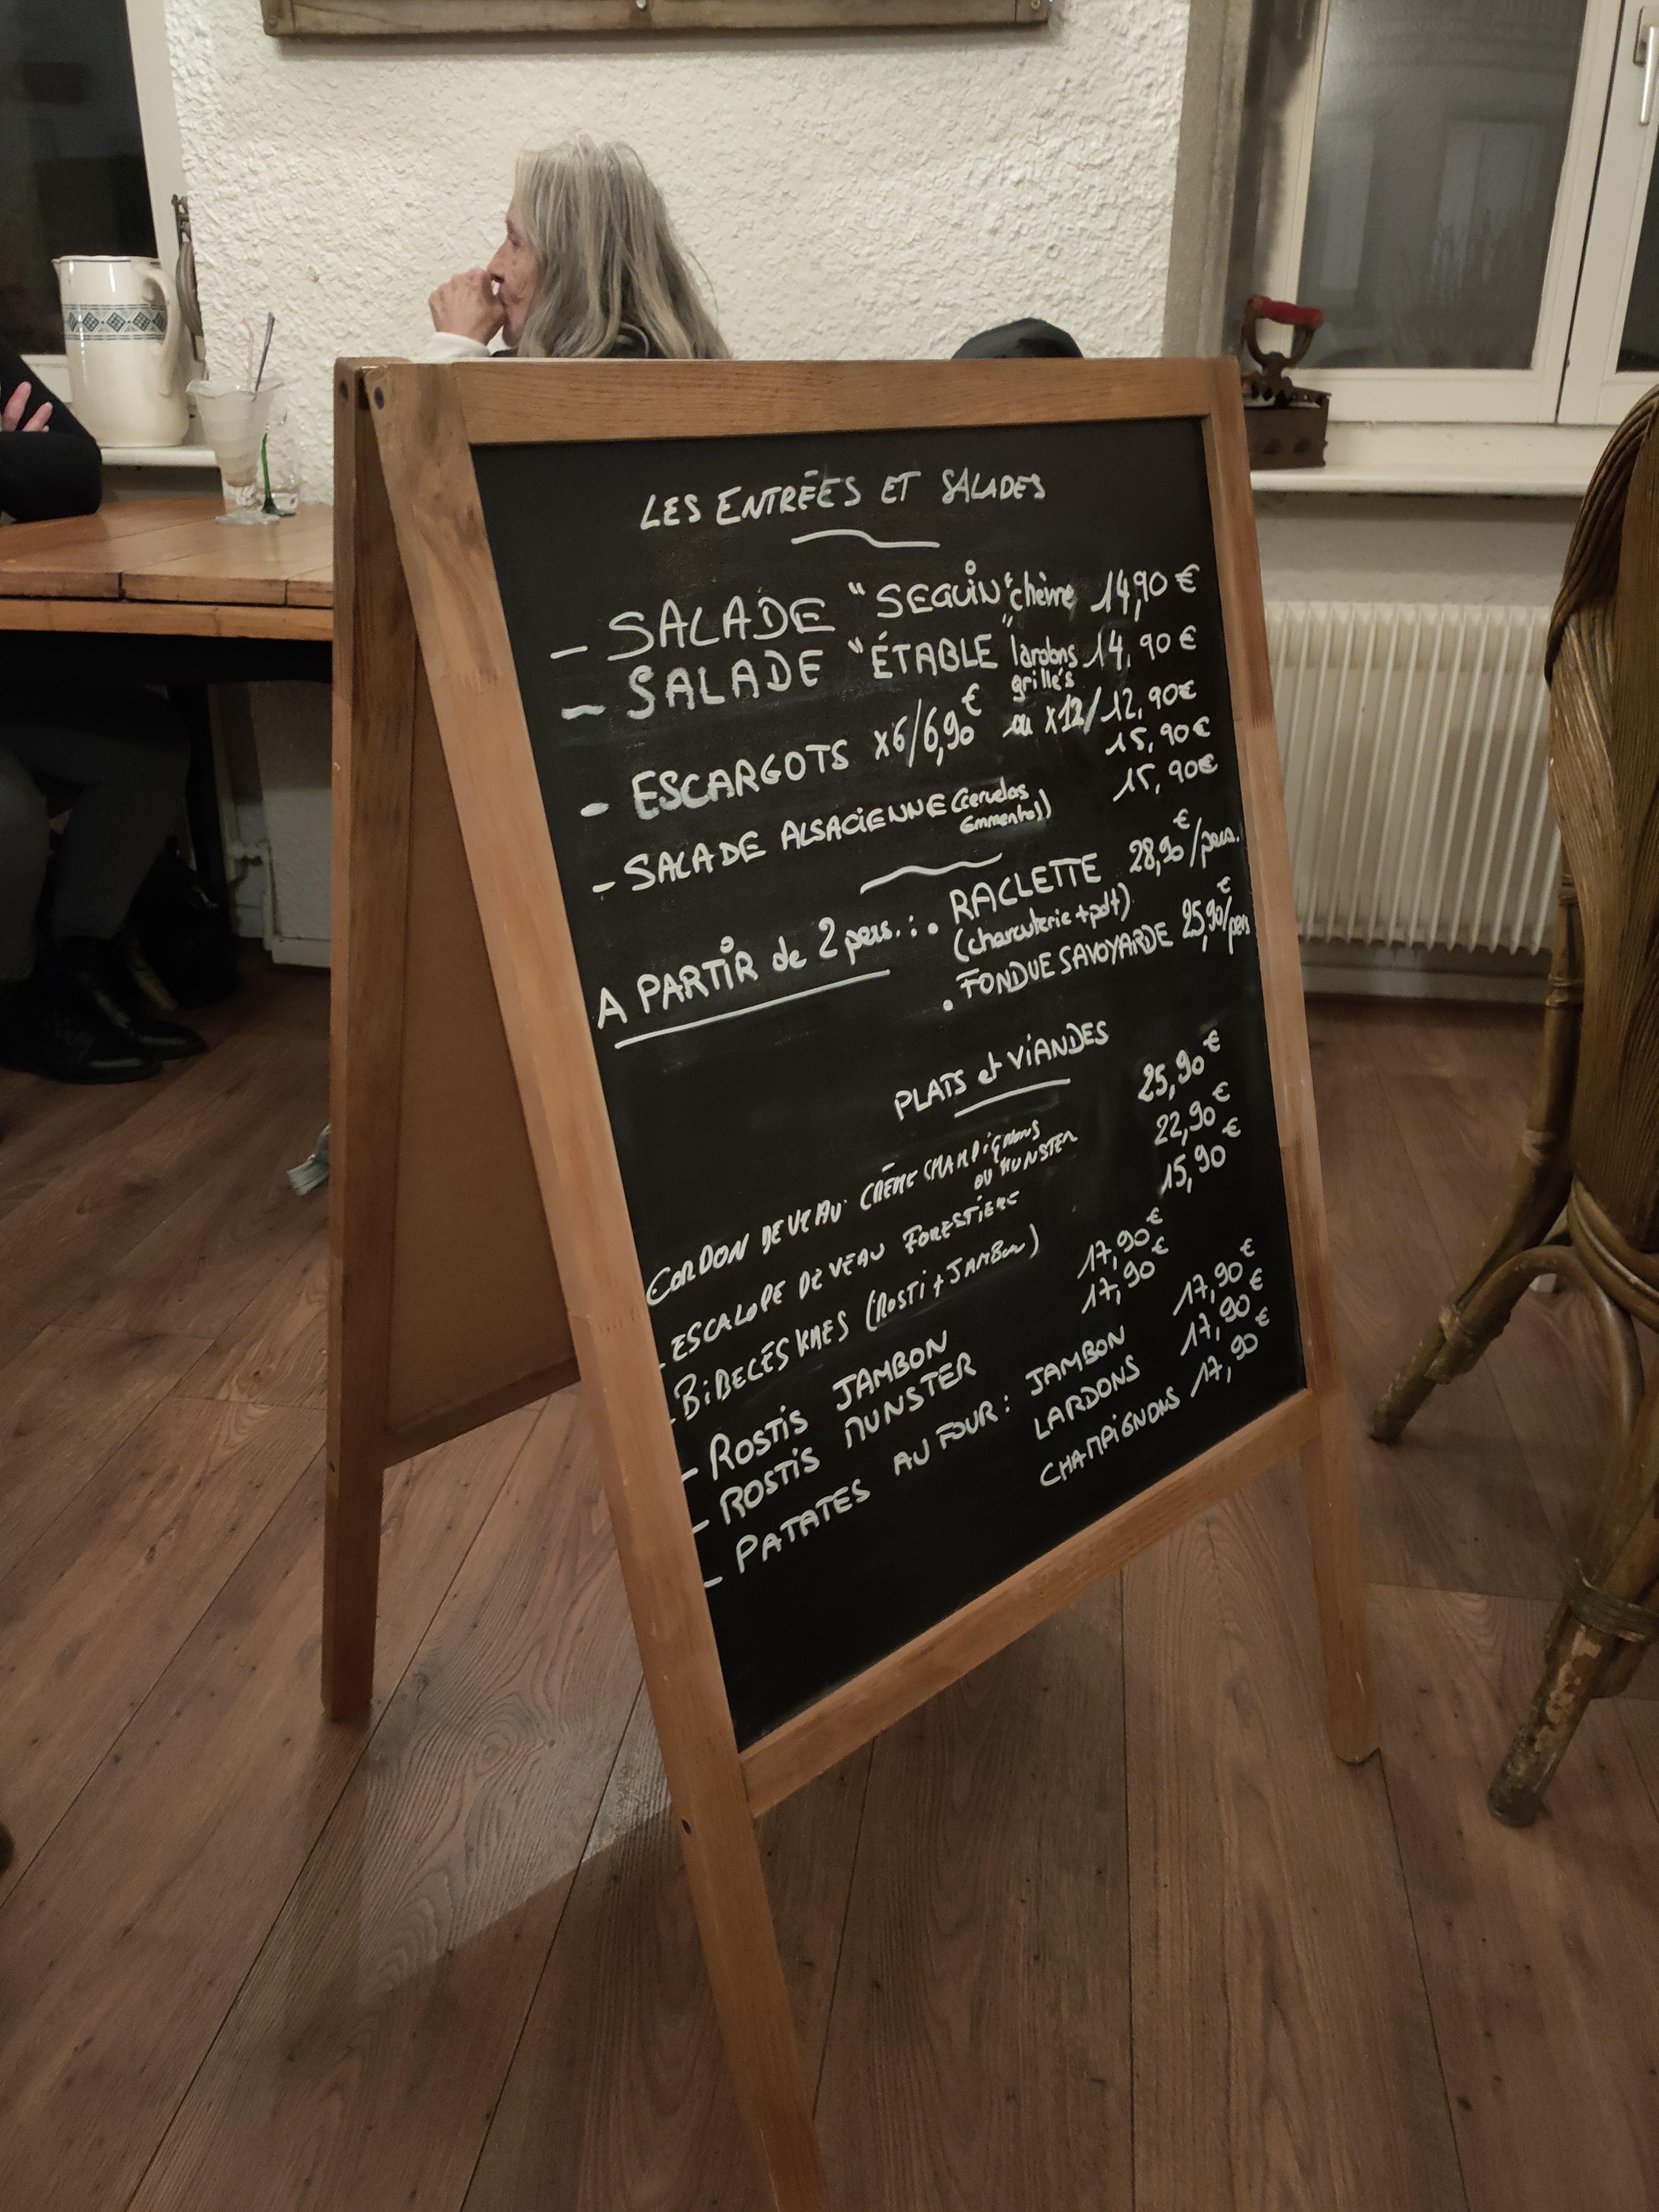 LES ENTRÉES ET SALADES
- SALADE "SEGUIN" chèvre 14,90 €
- SALADE "ÉTABLE" lardons grillés 14,90 €
- ESCARGOTS x6/6,90€ ou x12/12,90€
15,90€
- SALADE ALSACIENNE (cervelas Emmental) 15,90€
A PARTIR de 2 pers. : • RACLETTE 28,90€/pers.
(charcuterie + pdt)
• FONDUE SAVOYARDE 25,90€/pers
PLATS et VIANDES
CORDON DE VEAU CRÈME CHAMPIGNONS 25,90€
OU MUNSTER
- ESCALOPE DE VEAU FORESTIERE 22,90€
- BIBELESKAES (ROSTI + JAMBON) 15,90€
- ROSTIS JAMBON 17,90€
- ROSTIS MUNSTER 17,90€
- PATATES AU FOUR : JAMBON 17,90€
LARDONS 17,90€
CHAMPIGNONS 17,90€